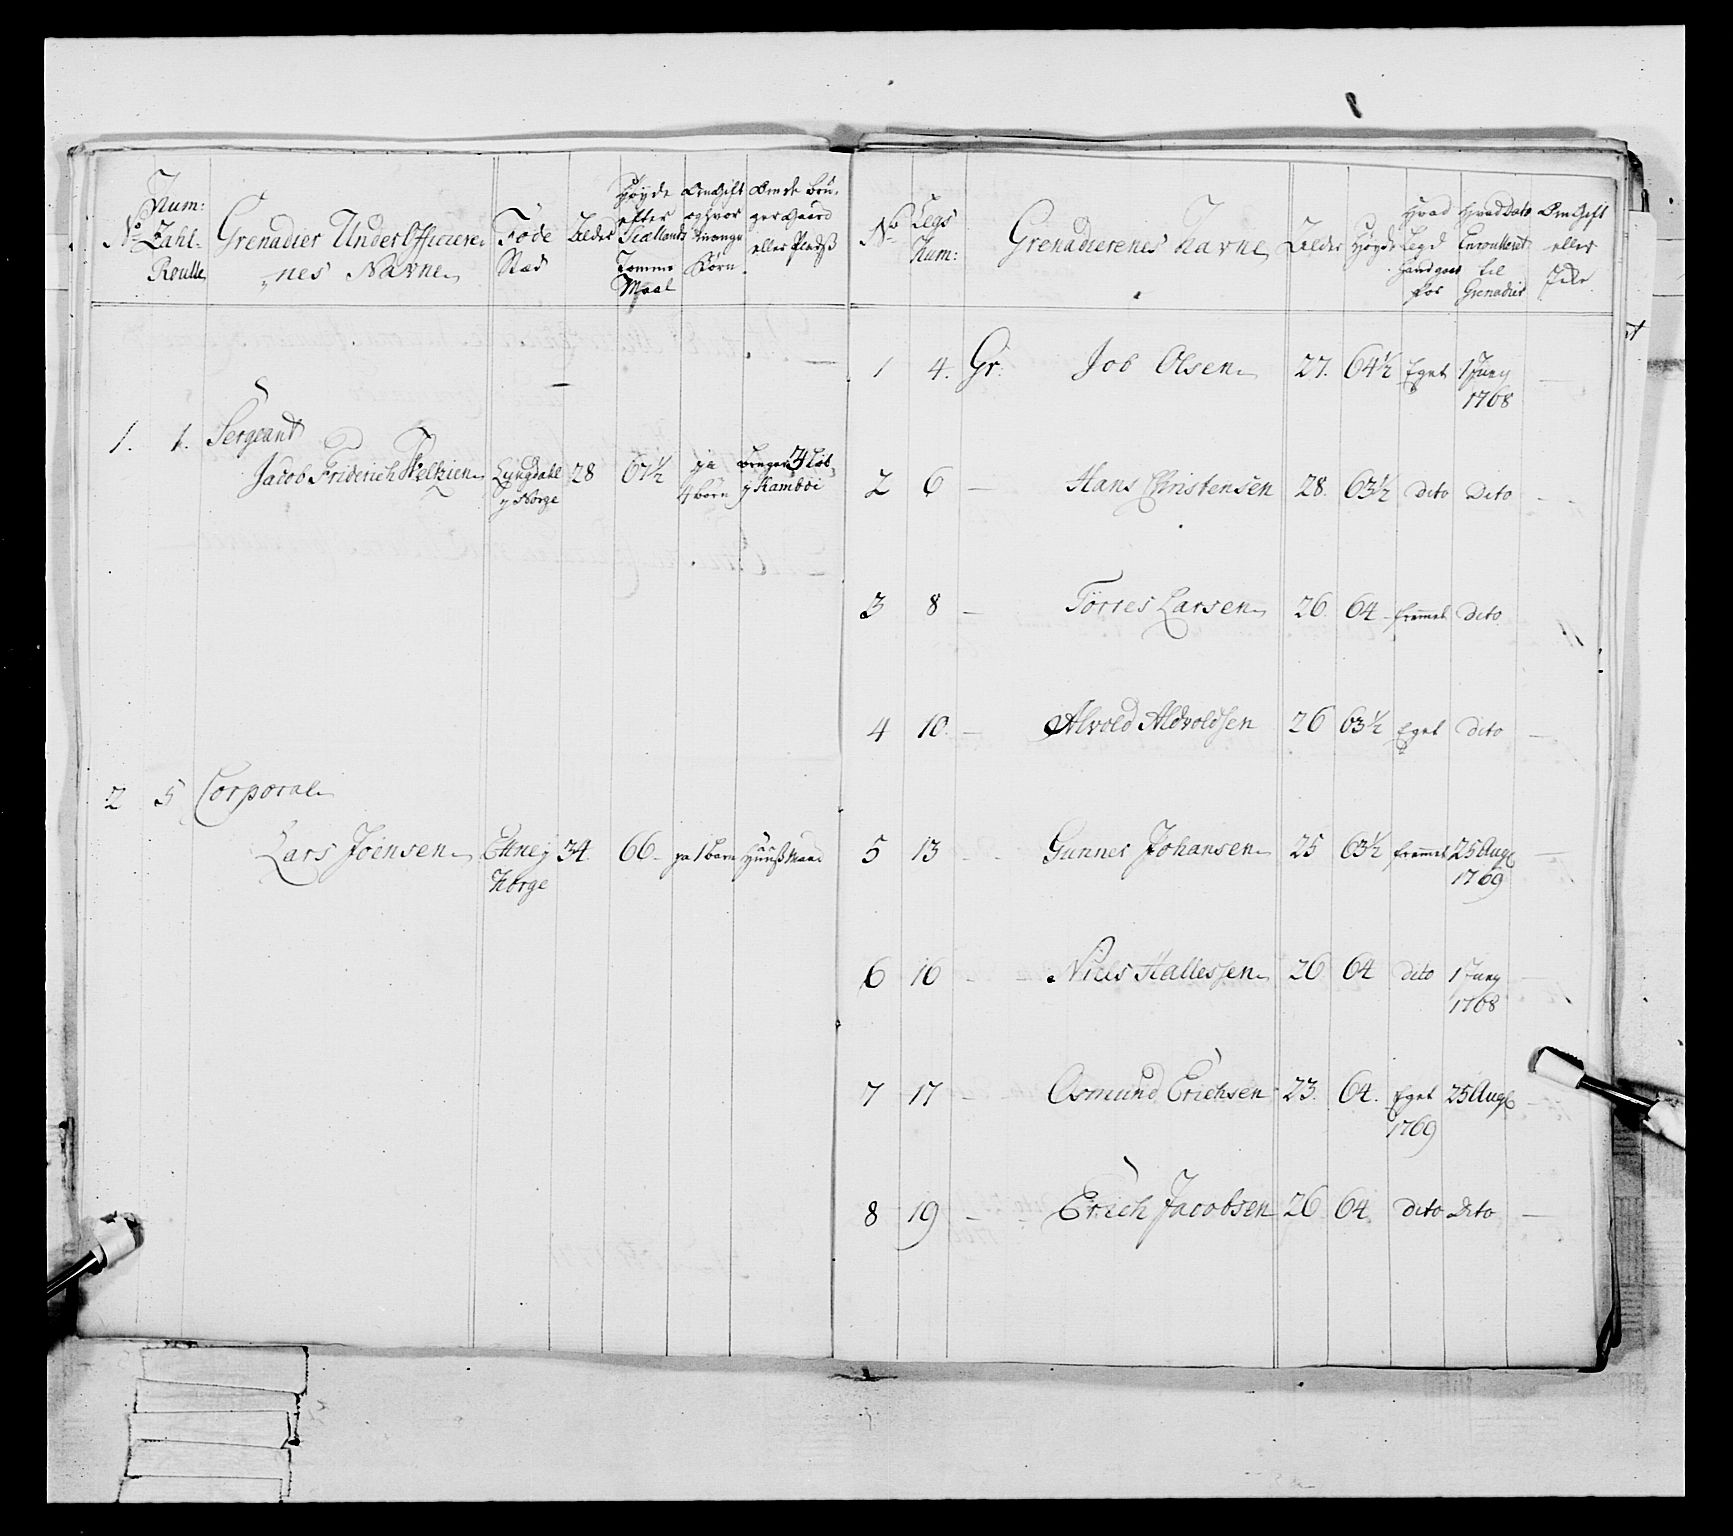 No
Num:
Zahl-
Roulle
Grenadier Under Officiere-
nes Navne
Føde
Stæd
Ælder
Høyde
efter
Siællands
Tomme
Maal
Om Gift
og hvor
mange
Børn
Om de bru-
ger Gaard
eller Pladß
1. 1. Sergeant
Jacob Friderich Lyngdahl 28 67½ ja
y Norge 4 børn y
2 5 Corporal
Lars Joensen Etne y 34. 66 ja 1 barn Huußmand
Norge
No
Legs
Num:
Grenadierenes Navne
Ælder
Høyde
Hvad
Legd
hand gaar
for
Hvad Dato
Enroulleret
til
Grenadier
Om Gift
eller
Ikke
1 4. Gr: Job Olsen 27. 64½ Eget 1 Juny —
1768
2 6 — Hans Christensen 28. 63½ dito Dito —
3 8 — Torres Larsen 26. 64 fremmet dito
4 10. — Alvold Aldvoldsen 26 63½ Eget dito —
5 13 — Gunner Johansen 25 63½ fremmet 25 Aug —
1769
6 16 — Niels Hallessen 26 64 dito 1 Juny —
1768
7 17 — Osmund Erichsen 23. 64. Eget 25 Aug —
1769
8 19 — Erich Jacobsen 26 64 dito Dito —